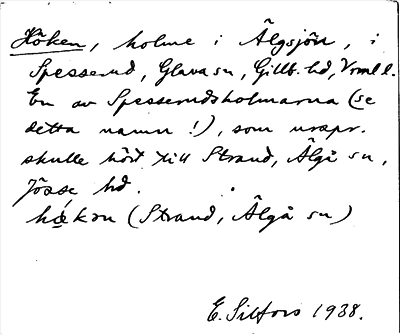 Höken, holme i Älgsjön, i
Spesserud, Glava sn, Gillb. hd, Vrml l.
En av Spesserudsholmarna (se
detta namn!), som urspr.
skulle hört till Strand, Älgå sn,
Jösse hd.
hǿkən (Strand, Älgå sn)
E. Silfors 1938.